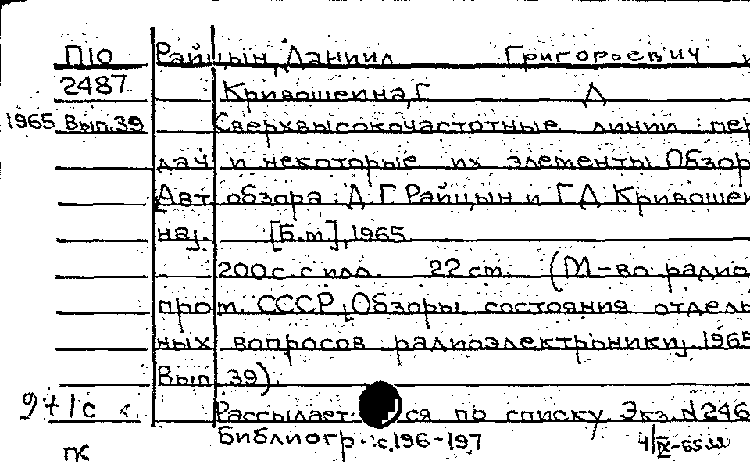 П10 Райцын, Даниил Григорьевич и
2487 Кривошеина, Г Д
1965 Вып.39 Сверхвысокочастотные линии пер
дач и некоторые их элементы Обзор
[Авт обзора: Д.Г Райцын и Г.Д Кривошеи
на]. [Б.м], 1965
200с с илл. 22 ст. (М-во радио
пром. СССР, Обзоры состояния отдель
ных вопросов радиоэлектроники. 1965
Вып 39)
9+1с Рассылается по списку Экз. №246
Библиогр.: с.196-197
ПК 4/IX-65